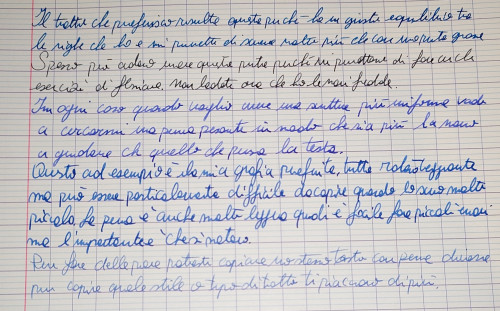 Il tratto che preferisco risulta questo perché ha un giusto equilibrio tra
le righe che ho e mi permette di scrivere molto più che con una punta grossa
Spero più avanti usare questa punta perché mi permettono di fare anche
esercizi di flessione, non badate ora che ho le mani fredde.
In ogni caso quando voglio avere una scrittura più uniforme vado
a cercarmi una penna pesante in modo che sia più la mano
a guidare che quello che pensa la testa.
Questo ad esempio è la mia grafia preferita, tutta rotondeggiante
ma può essere particolarmente difficile da capire quando la uso molto
piccola. La penna è anche molto leggera quindi è facile fare piccoli errori
ma l'importante è che si noti
Per fare delle prove potresti copiare uno stesso testo con penne diverse
per capire quale stile o tipo di tratto ti piacciono di più.